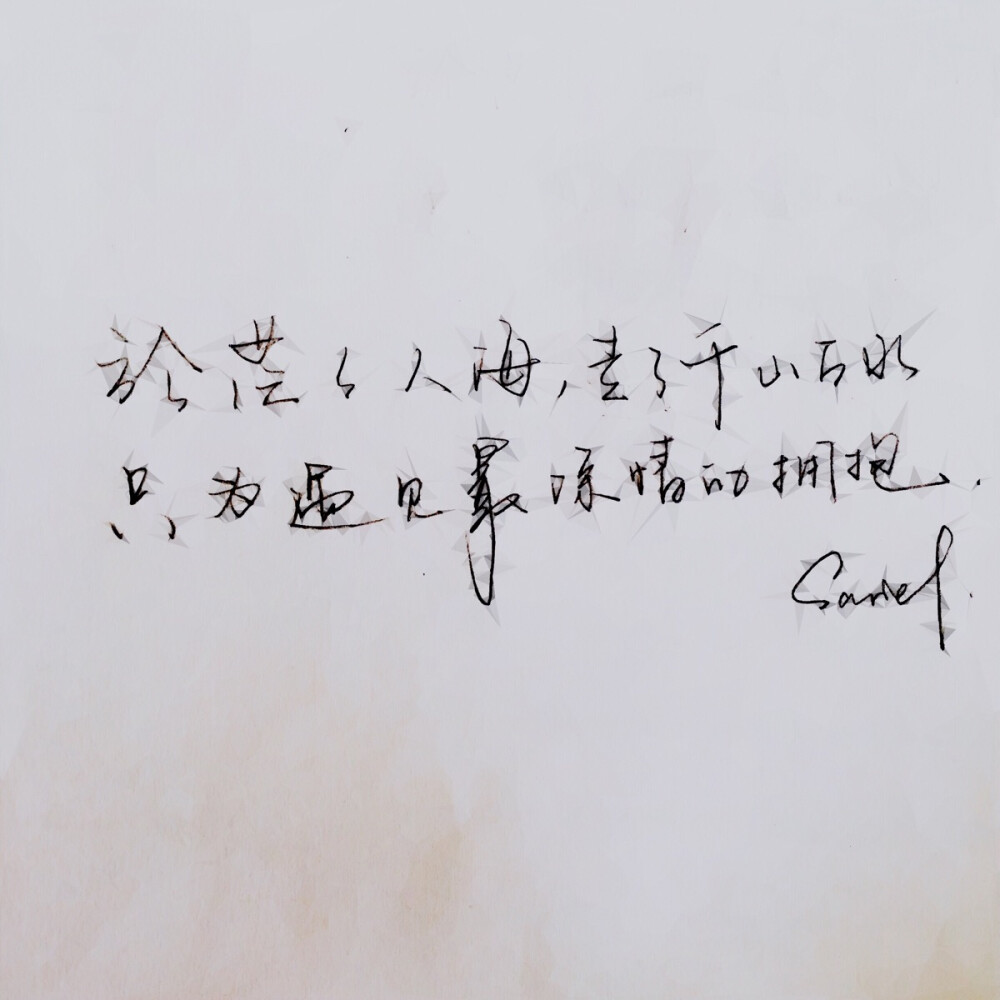 於茫々人海,走了千山万水
只为遇见最深情的拥抱.
Sariel.